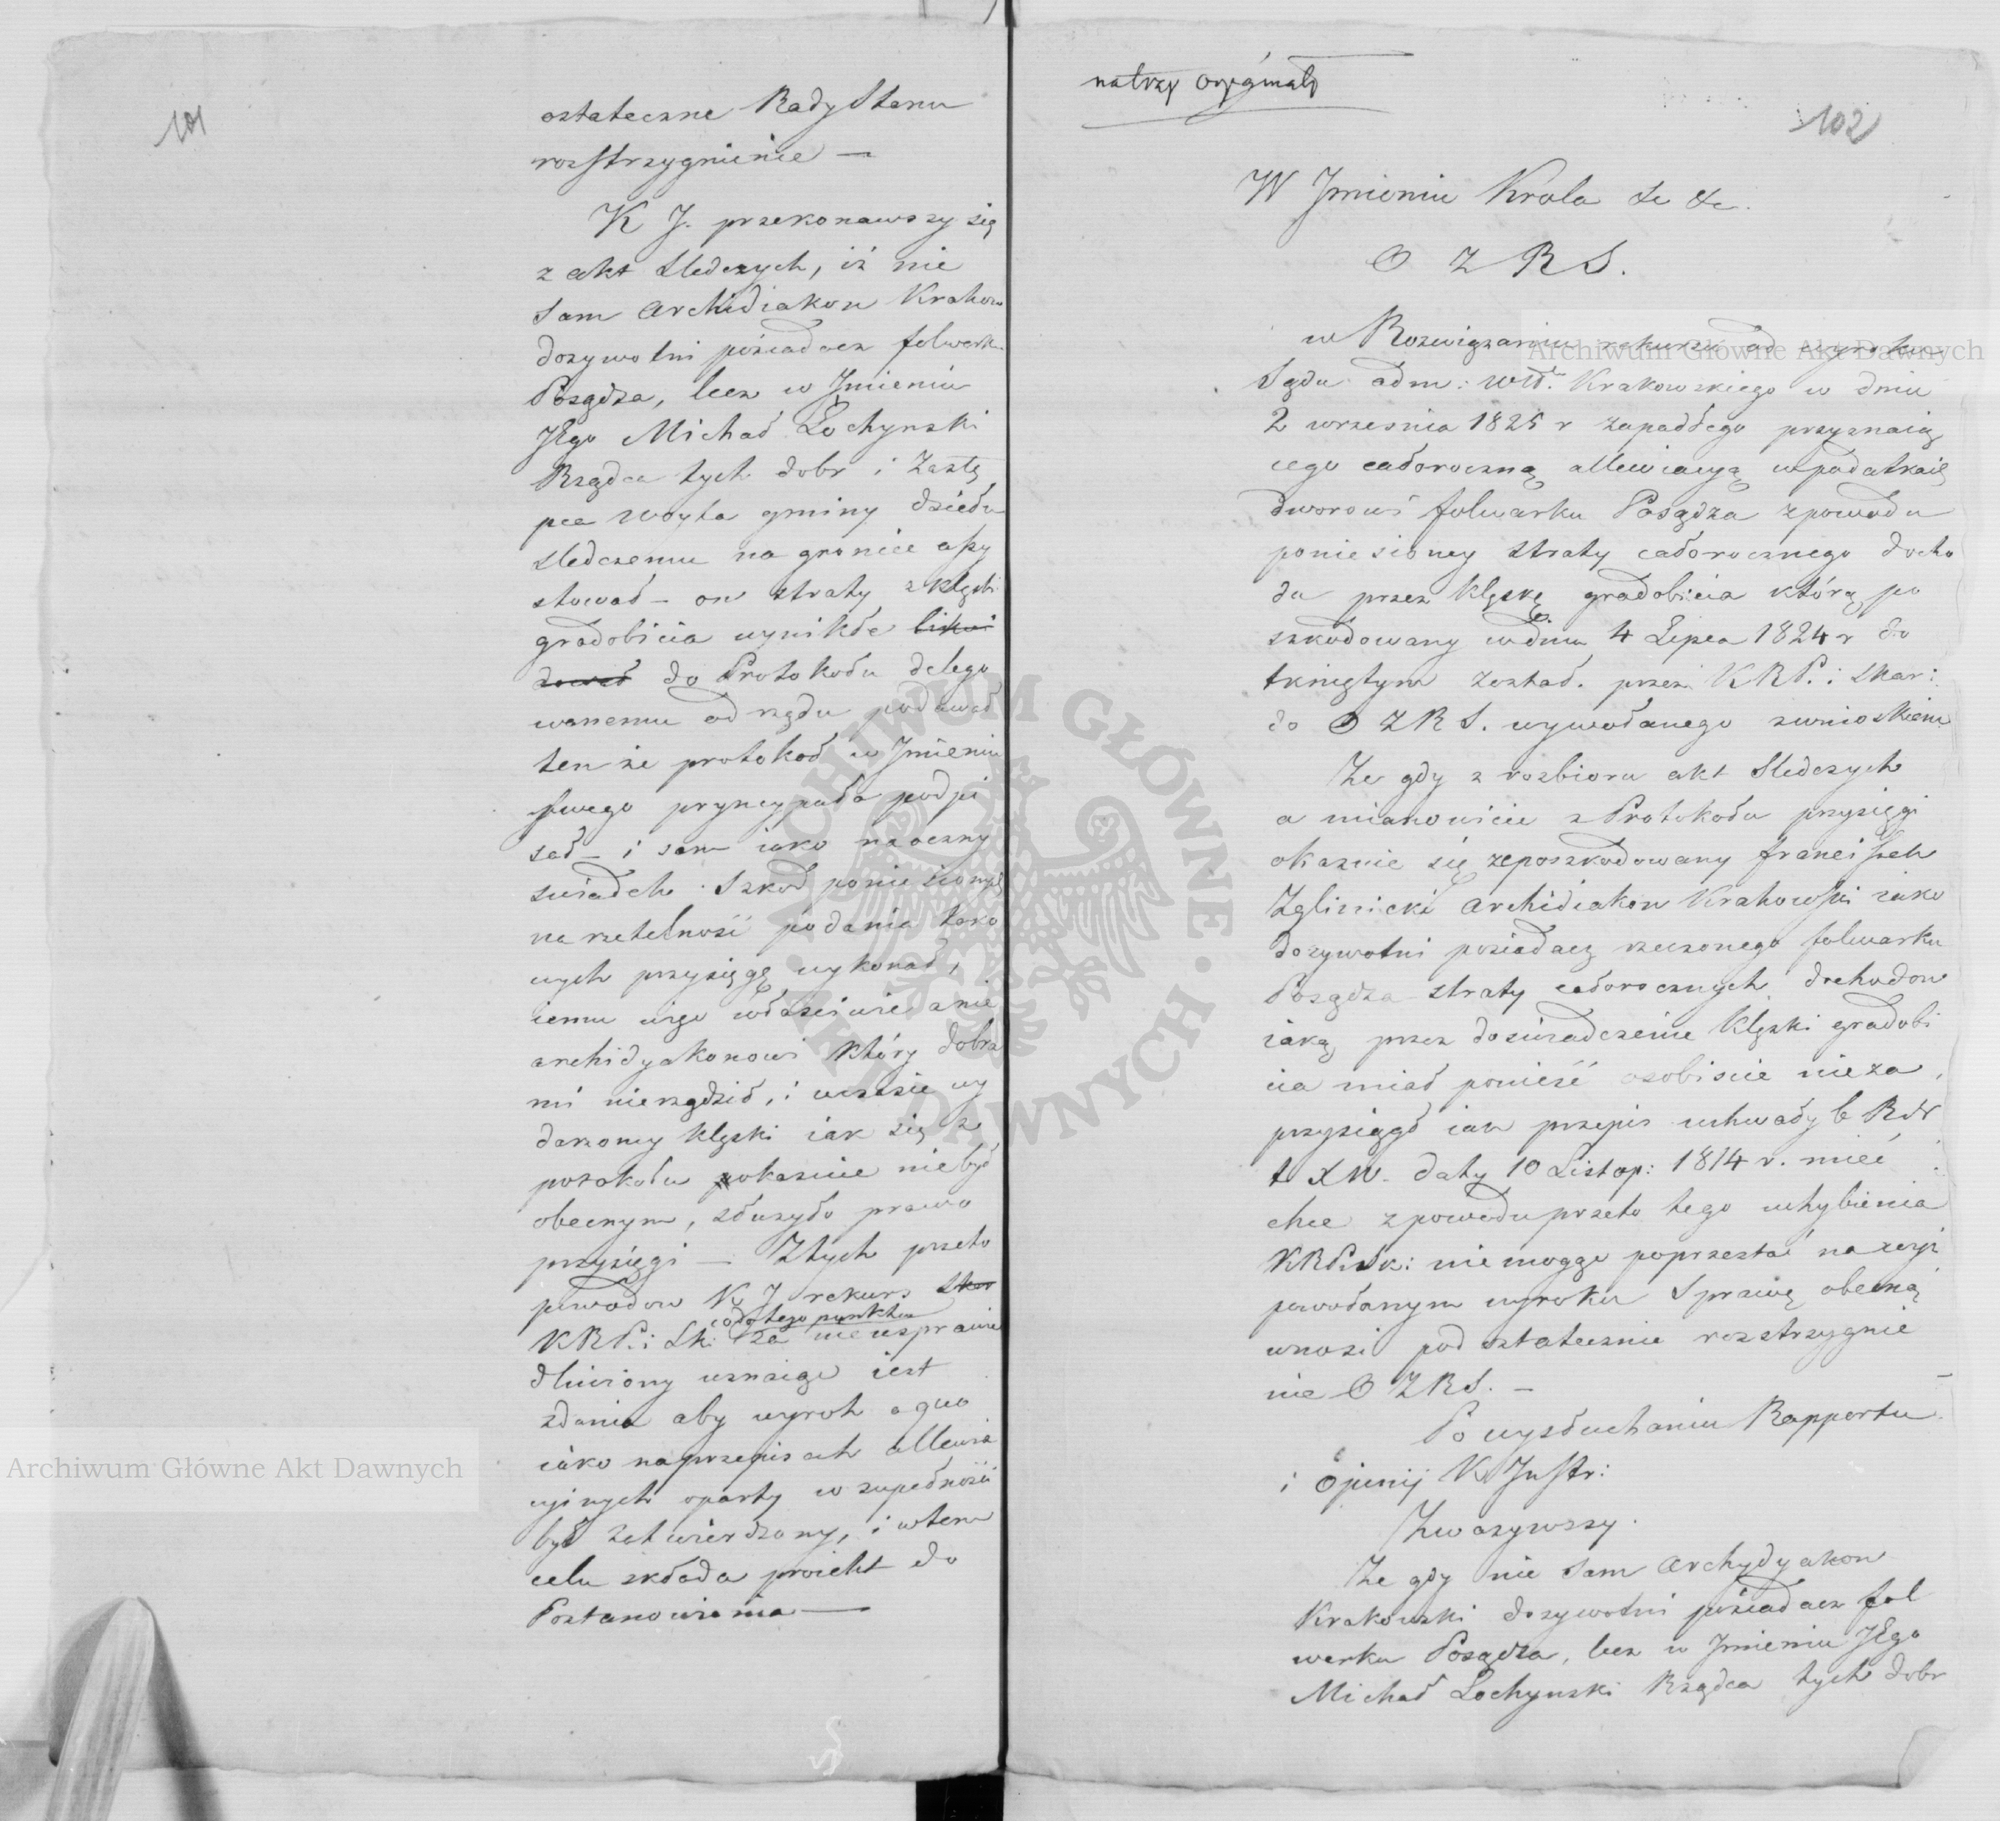 101
ostateczne Rady Stanu
rozstrzygnienie —
K J. przekonawszy się
z akt sledczych, iż nie
sam Archidiakon Krakow
dozywotni posiadacz folwark.
Posądza, lecz w Jmieniu
JEgo Michał Łochynski
Rządca tych dobr i Zastę
pca Woyta gminy dziełu
sledczemu na groncie assy
stował – on straty z klęski
gradobicia wynikłe likwi
dował do Protokołu delego
wanemu od rządu podawał
ten że protokoł w Jmieniu
swego pryncypała podpi
sał – i sam iako naoczny
swiadek szkod poniesionych
na rzetelność podania tako
wych przysięgę wykonał,
iemu więc właściwie a nie
archidyakonowi który dobra
mi nierządził, i wczasie wy
darzoney klęski iak się z
protokołu okazuie niebył
obecnym, służyło prawo
przysięgi — Ztych przeto
powodow K J rekurs Skar
co do tego punktu
KRP. i Sk: za nieuspraw
dliwiony uznaiąc iest
zdania aby wyrok a quo
iako na przepisach allewia
cyinych oparty w zupełności
był zatwierdzony, i wtem
celu składa proiekt do
Postanowienia —
natrzy oryginały
102
W Jmieniu Krola &c &c.
O Z R S.
w Rozwiązaniu rekursu od wyroku
Sądu adm: Wdt. Krakowskiego w dniu
2 wrzesnia 1825 r zapadłego przyznaią
cego całoroczną allewiacyą wpodatkach
dworowi folwarku Posądza zpowodu
poniesioney straty całorocznego docho
du przez klęskę gradobicia którą po
szkodowany wdniu 4 Lipca 1824 r do
tkniętym został. przez KRP. i Skar:
do O Z R S. wywołanego zwnioskiem
Ze gdy z rozbioru akt sledczych
a mianowicie z Protokołu przysięgi
okazuie się że poszkodowany franciszek
Zglinicki Archidiakon Krakowski iako
dozywotni posiadacz rzeczonego folwarku
Posądza straty całorocznych dochodow
iaką przez doswiadczenie klęski gradobi
cia miał ponieść osobiscie nieza
przysiągł iak przepis uchwały b RN
t XW. daty 10 Listop: 1814 r. mieć
chce zpowodu przeto tego uchybienia
KRP i Sk: nie mogąc poprzestać na rzy
powołanym wyroku Sprawę obecną
wnosi pod ostateczne rozstrzygnie
nie O Z R S. –
Po wysłuchaniu Rapportu
i Opinij K Justr:
Zwazywszy.
Ze gdy nie sam Archydyakon
Krakowski dozywotni posiadacz fol
warku Posądza, lecz w Jmieniu JEgo
Michał Lochynski Rządca tych dobr
Archiwum Główne Akt Dawnych
Archiwum Główne Akt Dawnych
ARCHIWUM GŁÓWNE AKT DAWNYCH